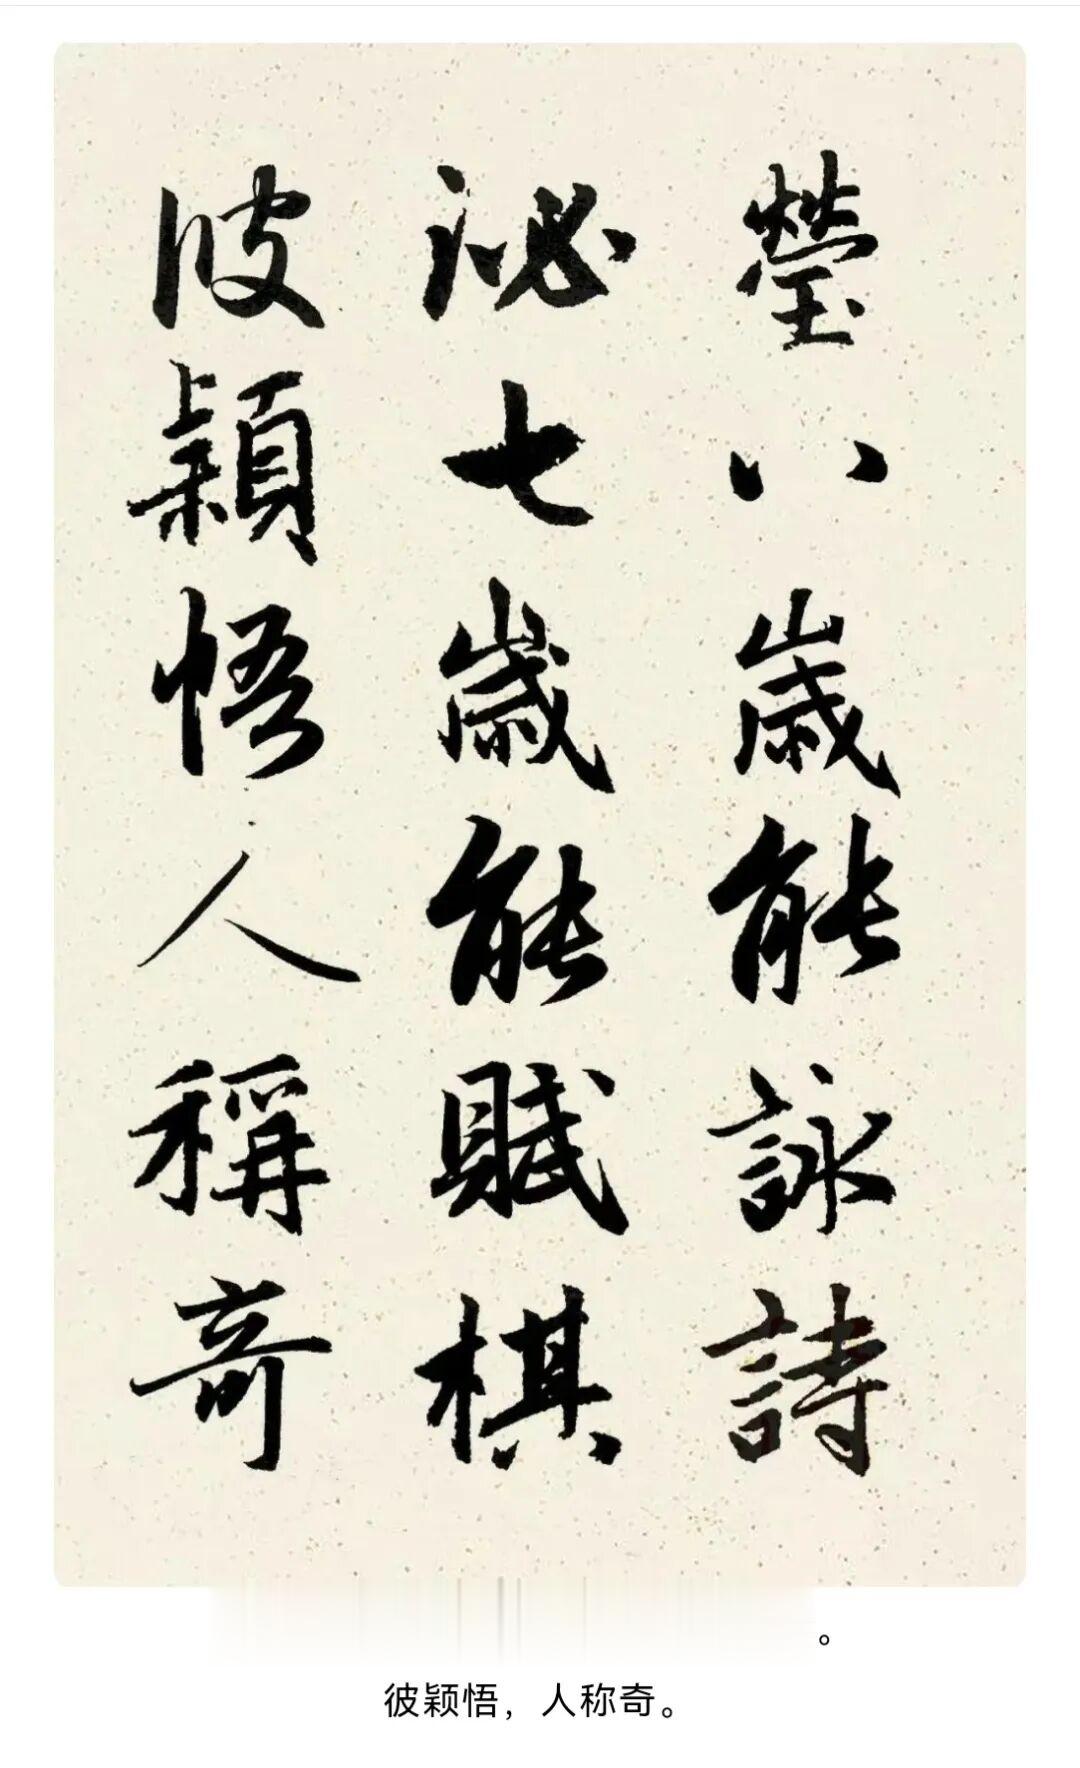 瑩八歲能詠詩
泌七歲能賦棋
彼穎悟人稱奇
。
彼颖悟，人称奇。